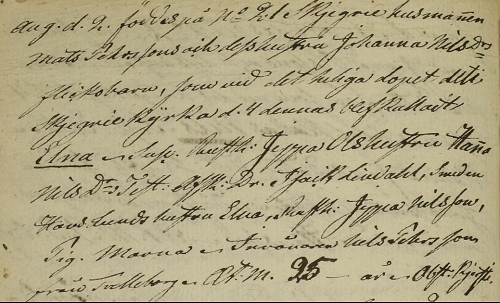 Aug. d. 2. föddes på No 21 Skjegrie husmannen
Mats Pehrssons och dess hustru Johanna Nils Dr
flickobarn, som vid det heliga dopet uti
Skjegrie Kyrka d. 4 dennas blef kalladt
Elna Susc. Jeppa Ols hustru Hanna
Nils Dr Test. Dr. Lindahl, Smeden
Hans Lunds hustru Elna, Jeppa Nilsson,
Pig. Marna Nils Pehrsson
från Trelleborg M. 25 — år